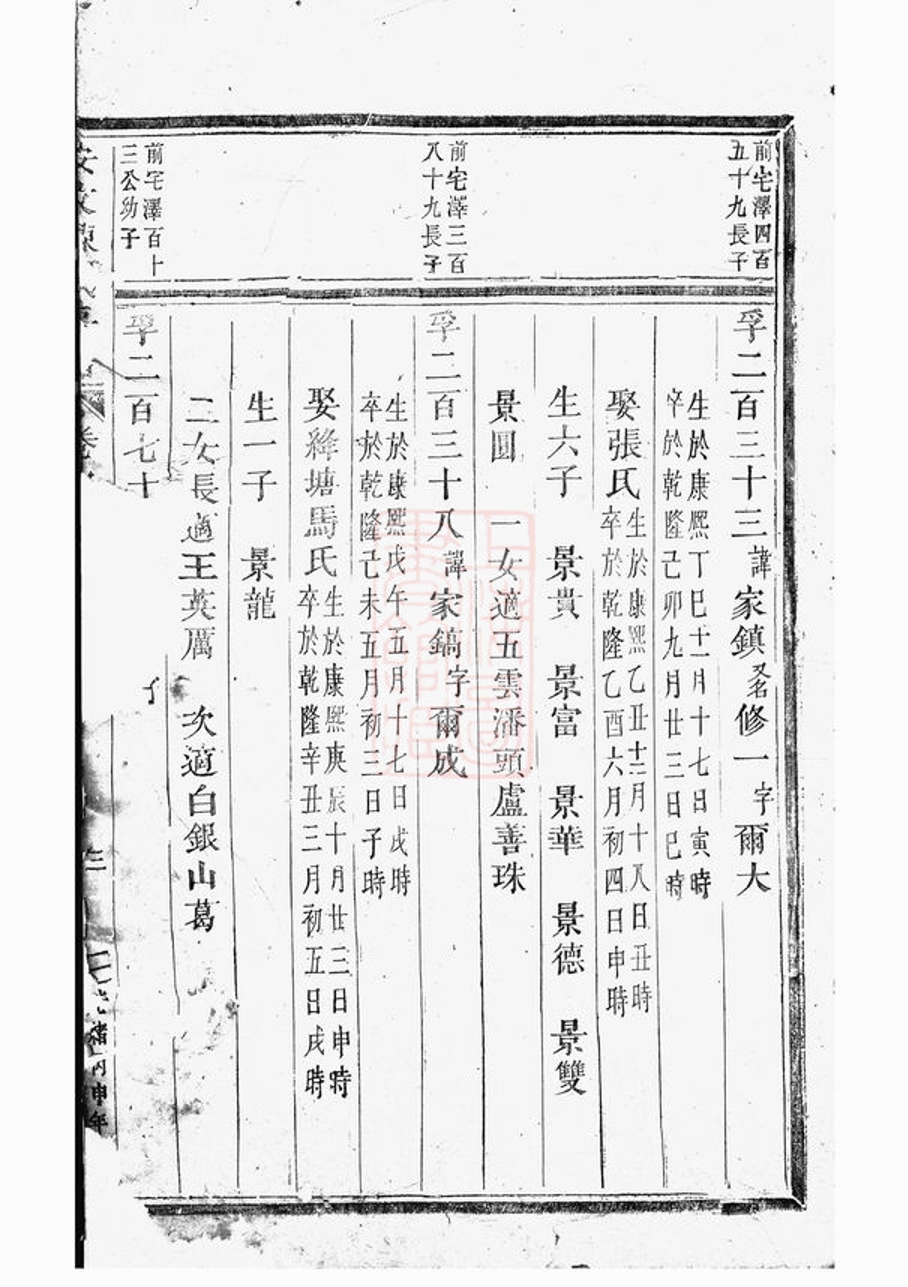 前宅澤四百
五十九長子
孚二百三十三諱家鎮又名修一字爾大
生於康熙丁巳十二月十七日寅時
卒於乾隆己卯九月廿三日巳時
娶張氏
生於康熙乙丑十二月十八日丑時
卒於乾隆乙酉六月初四日申時
生六子 景貴 景富 景華 景德 景雙
景圓 一女適五雲潘頭盧善珠
前宅澤三百
八十九長子
孚二百三十八諱家鎬字爾成
生於康熙戊午五月十七日戌時
卒於乾隆己未五月初三日子時
娶絳塘馬氏
生於康熙庚辰十月廿三日申時
卒於乾隆辛丑三月初五日戌時
生一子 景龍
二女長適王英厲 次適白銀山葛
前宅澤百十
三公幼子
孚二百七十
光緒丙申年